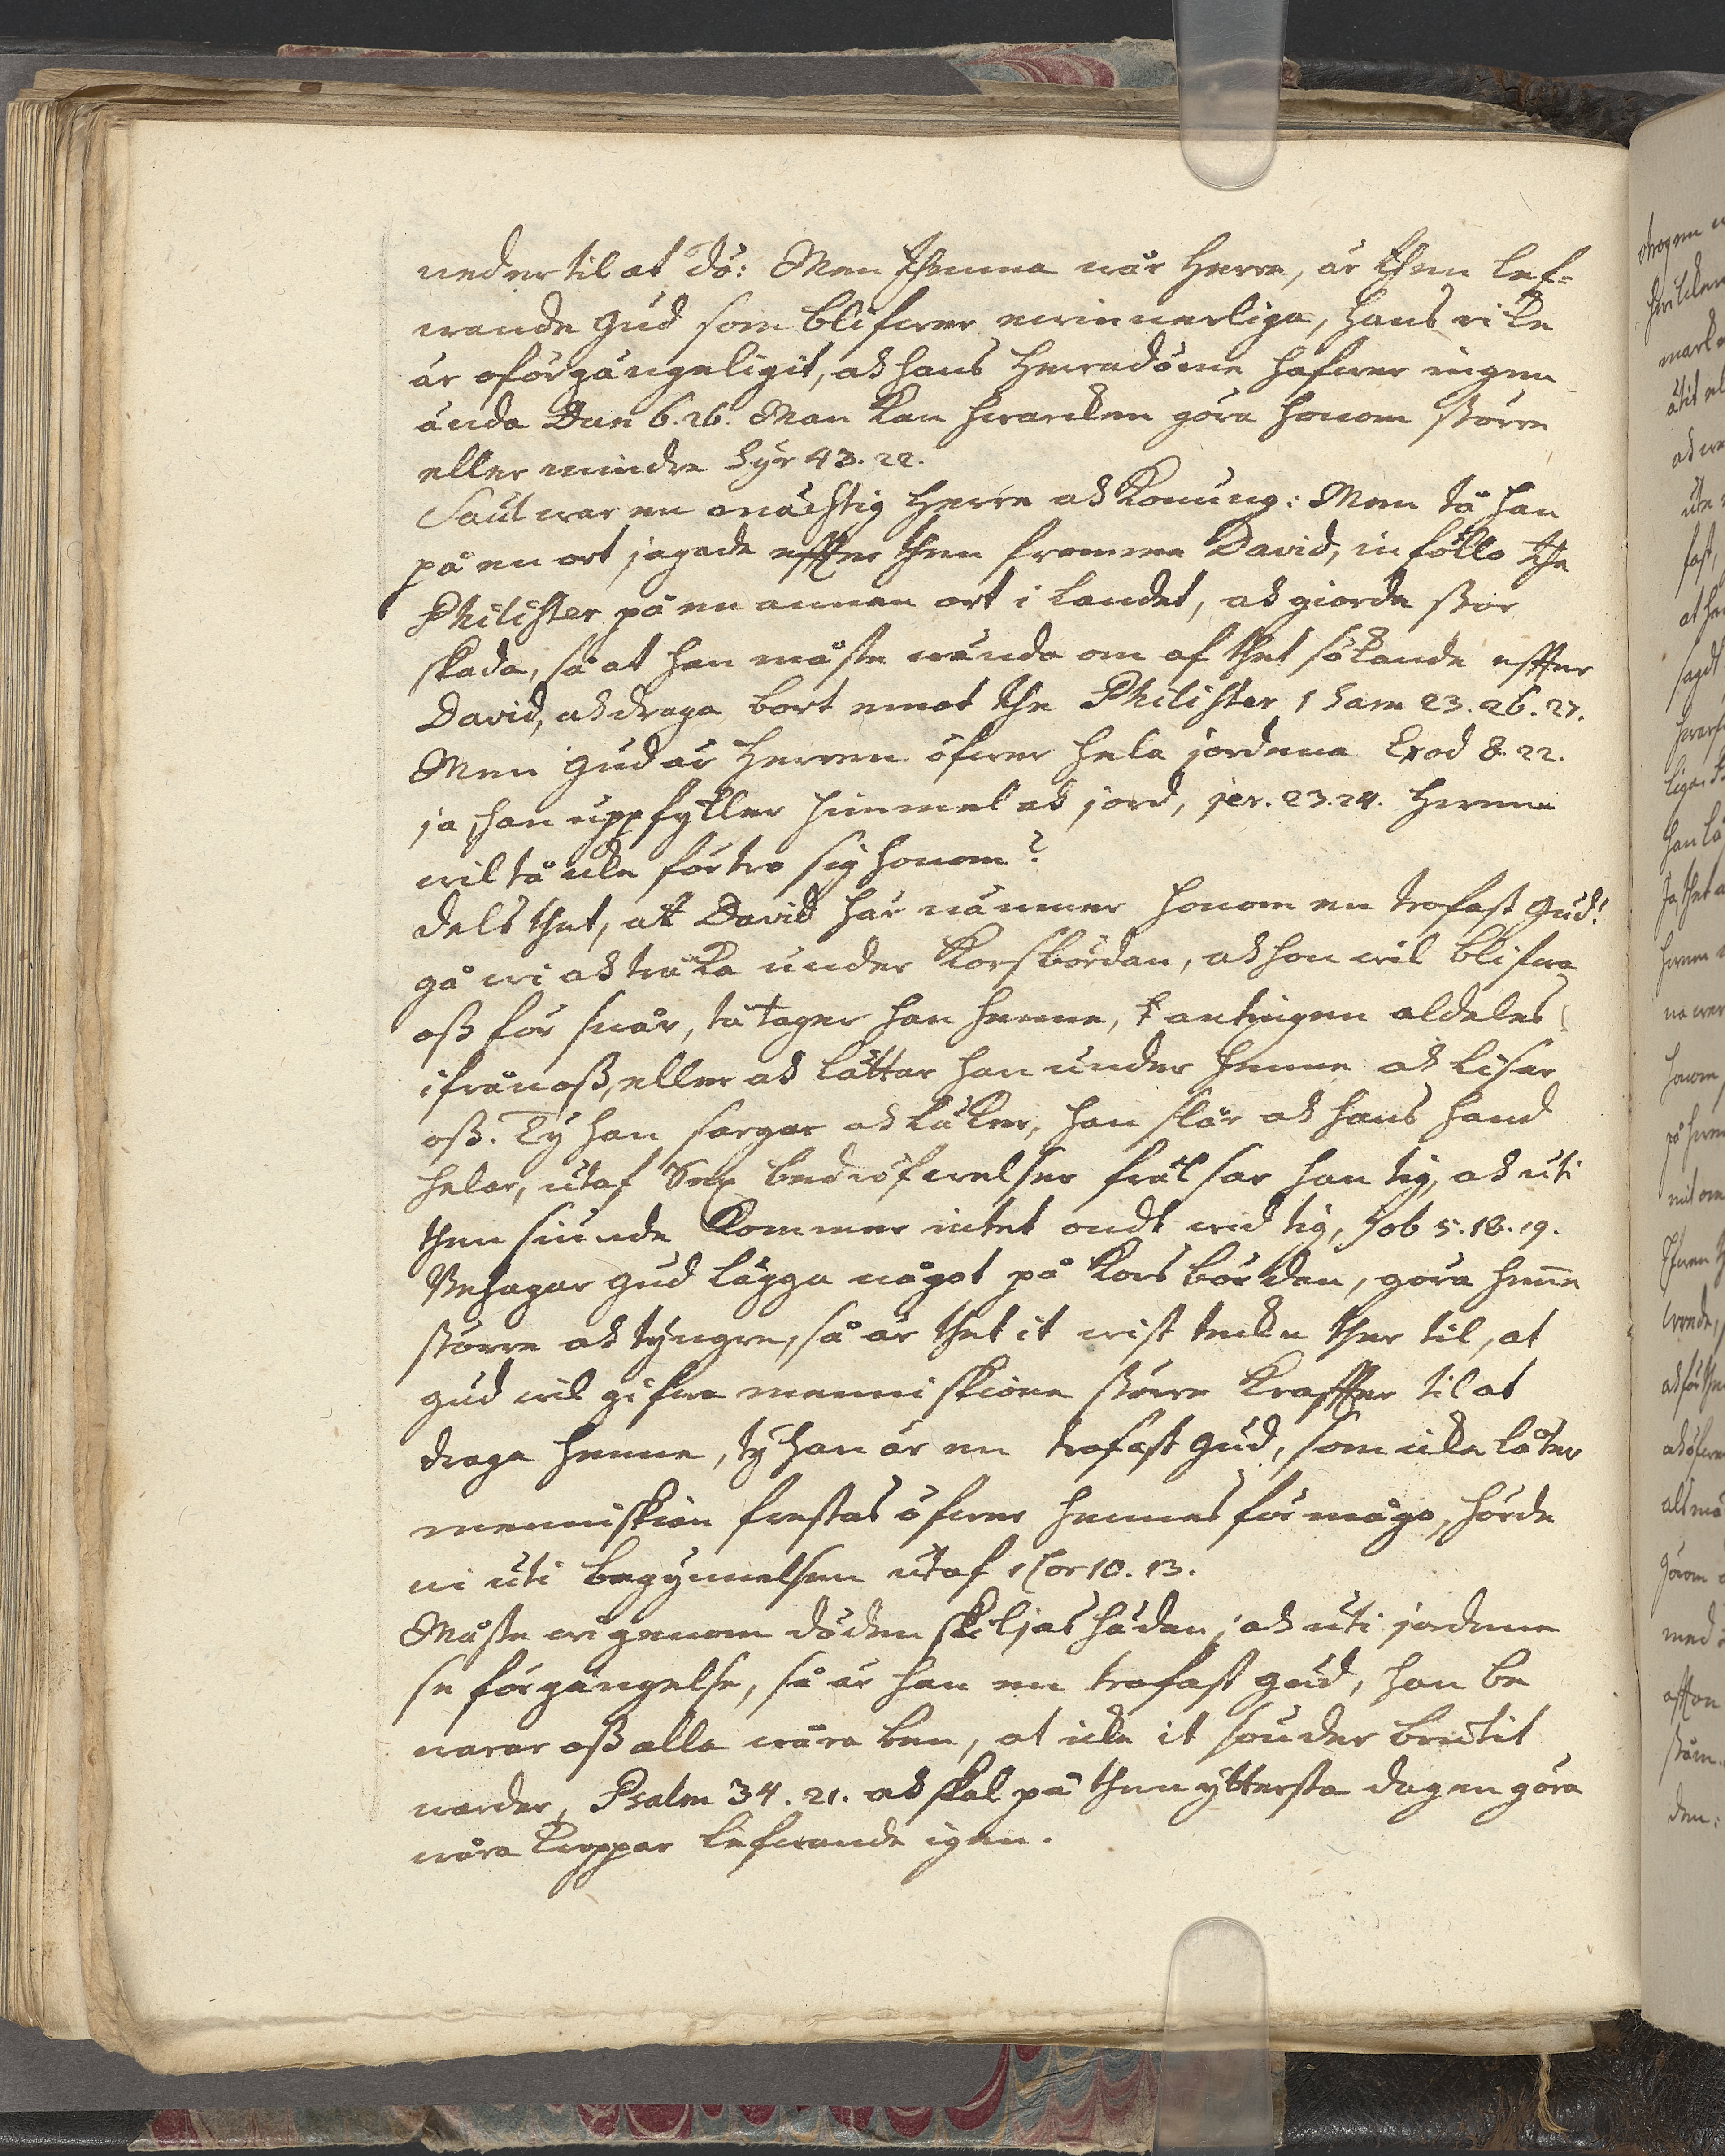 neder til at dö: Men thenna wår Herre, är then lef-
wande Gud som blifwer ewinnerliga, hans rike
är oförgängeligit, ock hans Herradöme hafwer ingen
ända Dan 6. 26. Man kan hwarcken göra honom större
eller mindre Syr 43. 22.
Saul war en mächtig Herre ock Konung: Men tå han
på en ort jagade effter then fromma David, inföllo the
Philister på en annan ort i landet, ock giorde stor
skada, så at han måste wända om af thet sökande effter
David, ock draga bort emot the Philister 1 Sam 23. 26. 27.
Men Gud är Herren öfwer hela jordena Exod 8. 22.
ja, han uppfyller himmel ock jord, jer. 23. 24. Hwem
wil tå icke förtro sig honom?
dels thet, att David här nämner honom en trofast Gud!
gå wi ock träla under Korsbördan, ock hon wil blifwa
oss för swår, tå tager han henne, antingen aldeles
ifrån oss, eller ock lättar han under henne ock lisar
oss. Ty han sargar ock läker, han slår ock hans hand
helar, utaf Sex bedröfwelser frälsar han tig, ock uti
then siunde kommer intet ondt wid tig, Job 5. 18. 19.
Behagar Gud lägga något på Korsbördan, göra henne
större ock tyngre, så är thet it wist tecken ther til, at
Gud wil gifwa menniskione större kraffter til at
draga henne, ty han är en trofast Gud, som icke låter
menniskion frestas öfwer hennes förmågo, hörde
ni uti begynnelsen utaf 1 Cor 10. 13.
Måste wi genom döden skiljas hädan, ock uti jordene
se förgängelse, så är han en trofast Gud, han be
warar oss alla wåra ben, at icke it sönder brutit
warder, Psalm 34. 21. ock skal på then yttersta dagen göra
wåra kroppar lefwande igen.